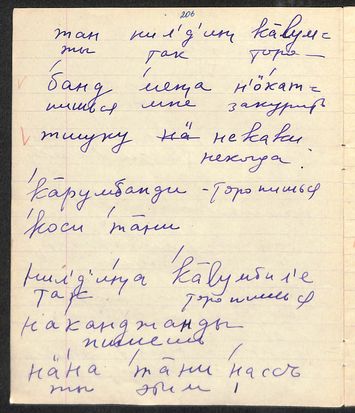 206
тан нил'д'иңи ка̄вум=
ты так торо—
банд меңа н'ӧкат=
пишься мне закурить
тишуку нӓ некаки
некогда
ка̄румбанди - торопишься
коси та̄ни
нил'д'иңа ка̄вумбил'е
так торопишься
наканджанды
пишешь
на̄на та̄ни нассъ
ты этим